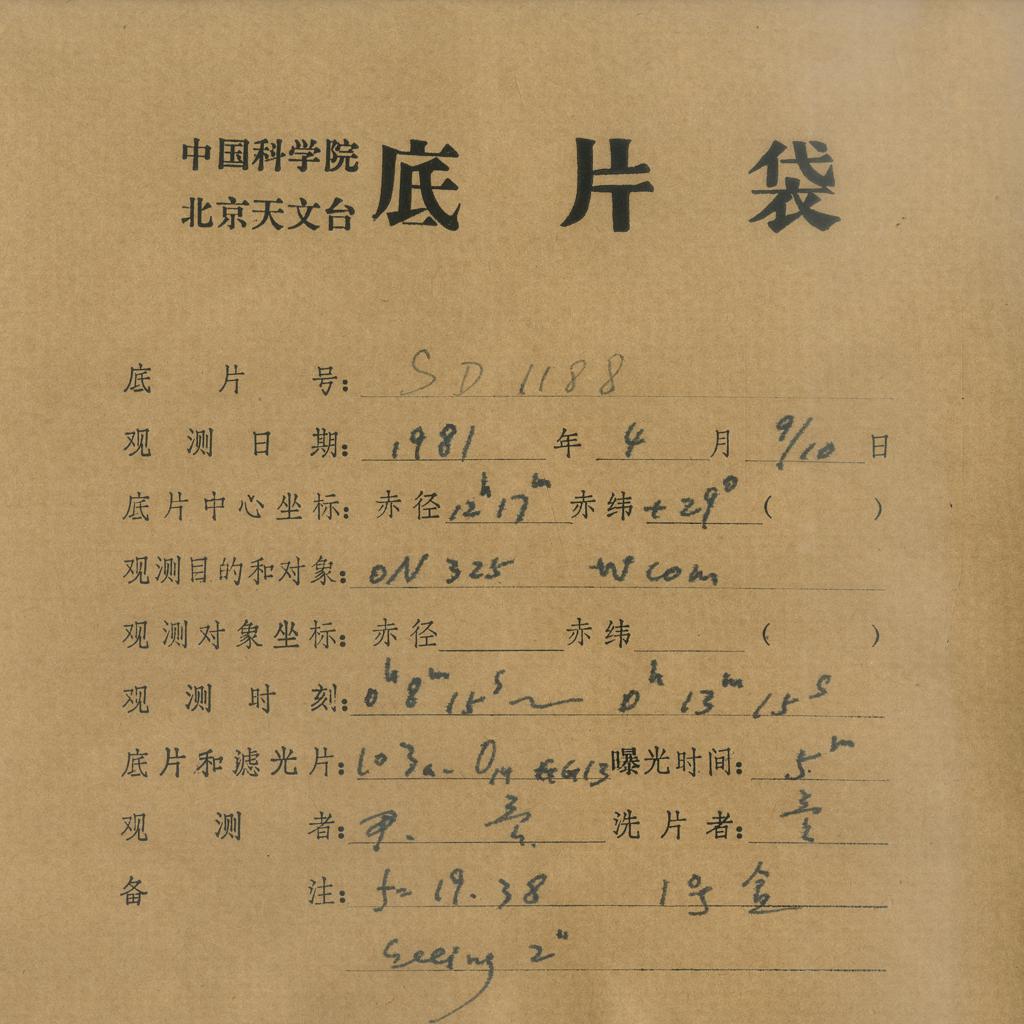 中国科学院
北京天文台
底片袋
底片号: SD 1188
观测日期: 1981 年 4 月 9/10 日
底片中心坐标: 赤径 12h 17m 赤纬 +29° ( )
观测目的和对象: ON 325 W com
观测对象坐标: 赤径 赤纬 ( )
观测时刻: 0h 8m 15s ~ 0h 13m 15s
底片和滤光片: 103a-O 曝光时间: 5m
观测者: 洗片者:
备注: f= 19.38 1号盒
Seeing 2"